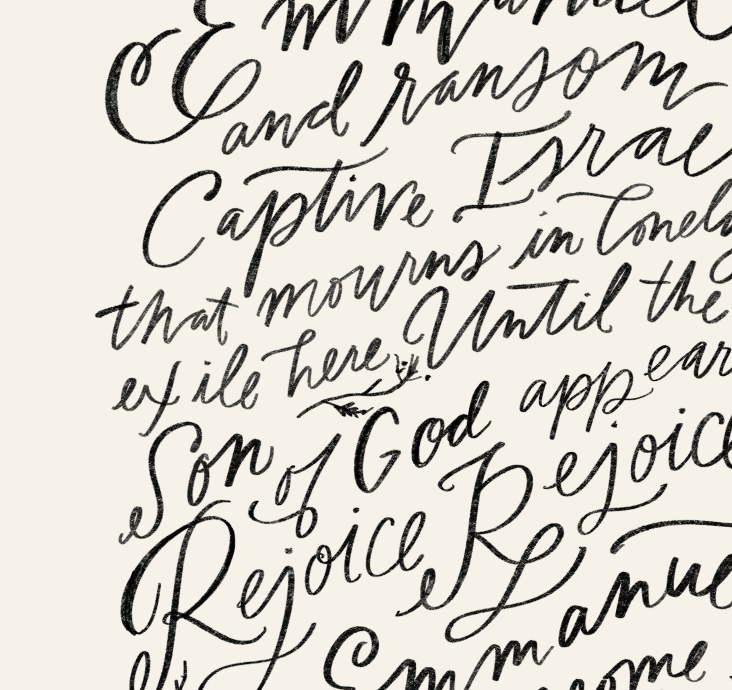 Emmanuel
and ransom
Captive Israel
that mourns in lonely
exile here Until the
Son of God appear
Rejoice Rejoice
Emmanue